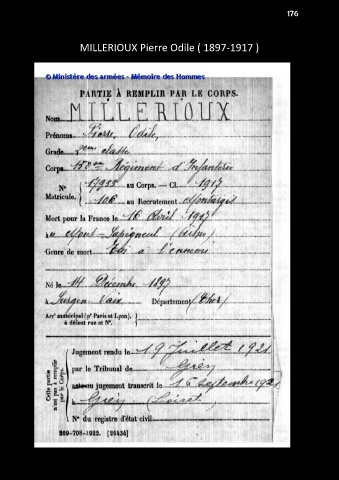 176
MILLERIOUX Pierre Odile ( 1897-1917 )
© Ministère des armées - Mémoire des Hommes
PARTIE À REMPLIR PAR LE CORPS.
Nom MILLERIOUX
Prénoms Pierre, Odile,
Grade 2eme classe
Corps Régiment d'Infanterie
N° 17955 au Corps. — Cl. 1917
Matricule. 106 au Recrutement Montargis
Mort pour la France le 16 Avril 1917
à Mont-Sapigneul (Aisne)
Genre de mort Tué à l'ennemi
Né le 14 Décembre 1897
à Département (Cher)
Arrt municipal (pr Paris et Lyon),
à défaut rue et N°.
Cette partie
n'est pas à remplir
par le Corps.
Jugement rendu le 19 Juillet 1921
par le Tribunal de Gien
acte ou jugement transcrit le 16 septembre 1921
à Gien (Loiret)
N° du registre d'état civil
269-708-1922. [26434]